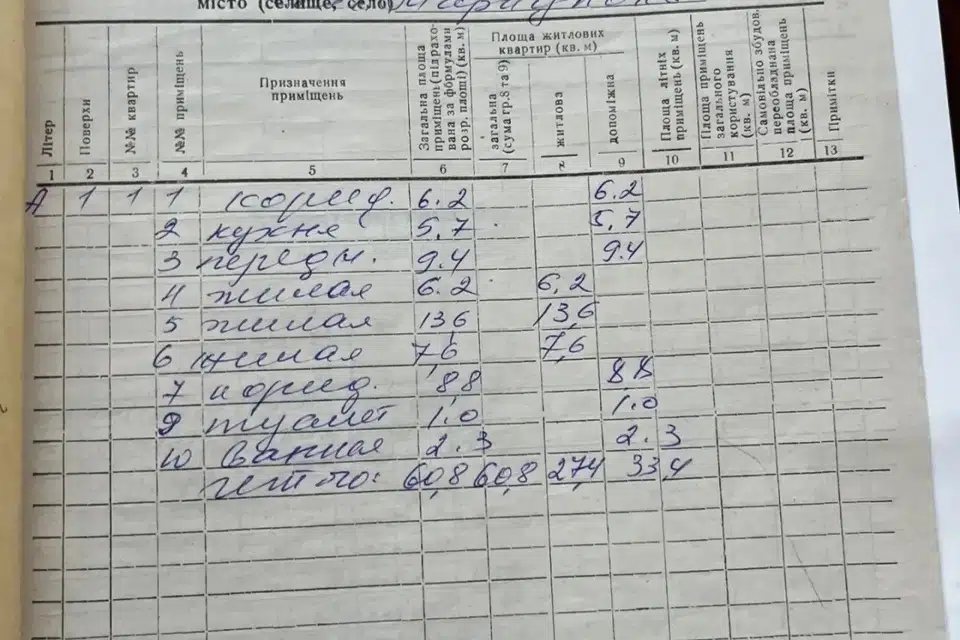 місто (селище, село)
Літер
Поверхи
№№ квартир
№№ приміщень
Призначення
приміщень
Загальна площа
приміщень (підрахо-
вана за формулами
розр. площі) (кв. м)
Площа житлових
квартир (кв. м)
загальна
(сума гр. 8 та 9)
житлова
допоміжна
Площа літніх
приміщень (кв. м)
Площа приміщень
загального
користування
(кв. м)
Самовільно збудов.
переобладнана
площа приміщень
(кв. м)
Примітки
1 2 3 4 5 6 7 8 9 10 11 12 13
А 1 1 1 корид. 6.2 6.2
2 кухня 5,7 5,7
3 передн. 9.4 9.4
4 жилая 6.2 6,2
5 жилая 13,6 13,6
6 жилая 7,6 7,6
7 корид. 8,8 8,8
9 туалет 1.0 1.0
10 ванная 2.3 2.3
60,8 60,8 27,4 33,4